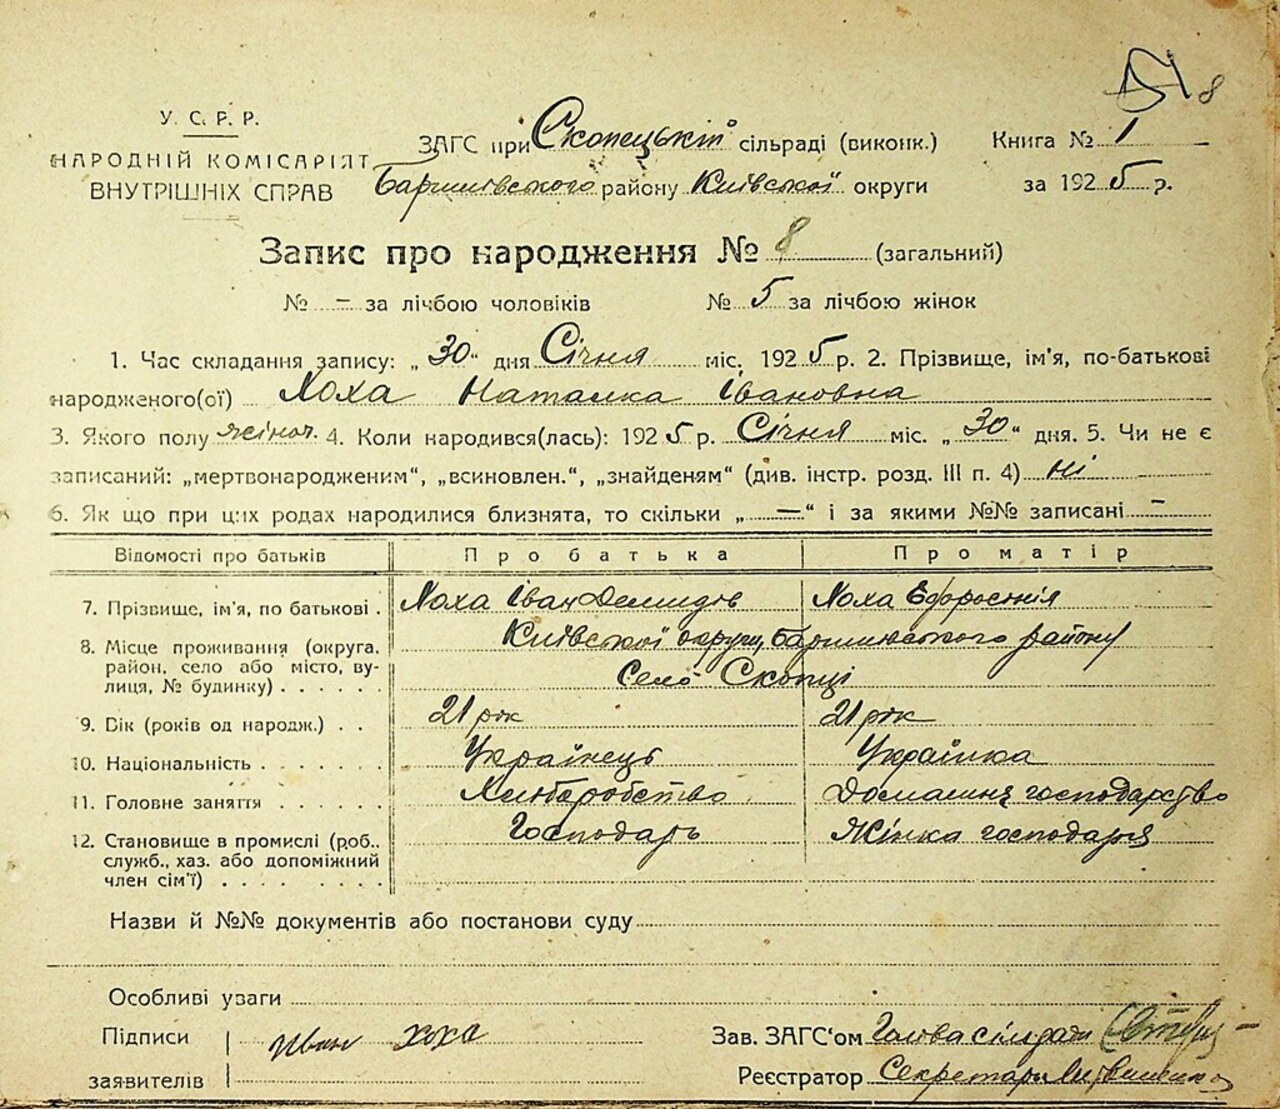 8
У. С. Р. Р.
НАРОДНІЙ КОМІСАРІЯТ
ВНУТРІШНІХ СПРАВ
ЗАГС при Скопецькій сільраді (виконк.) Книга № 1
Баришівського району Київської округи за 1925 р.
Запис про народження № 8 (загальний)
№ – за лічбою чоловіків № 5 за лічбою жінок
1. Час складання запису: „30“ дня Січня міс. 1925 р. 2. Прізвище, ім'я, по-батькові
народженого(ої) Хоха Наталка Івановна
3. Якого полу жіноч. 4. Коли народився(лась): 1925 р. Січня міс. „30“ дня. 5. Чи не є
записаний: „мертвонародженим“, „всиновлен.“, „знайденям“ (див. інстр. розд. III п. 4) ні
6. Як що при цих родах народилися близнята, то скільки „—“ і за якими №№ записані –
Відомості про батьків Про батька Про матір
7. Прізвище, ім'я, по батькові . Хоха Іван Демидів Хоха Ефросинія
8. Місце проживання (округа, Київської округи, Баришивського району
район, село або місто, ву-
лиця, № будинку) . . . . . . Село Скопці
9. Вік (років од народж.) . . 21 рік 21 рік
10. Національність . . . . . . Українець Українка
11. Головне заняття . . . . . . Хліборобство Домашнє господарство
12. Становище в промислі (роб., Господарь Жінка господаря
служб., хаз. або допоміжний
член сім'ї) . . . . . . . .
Назви й №№ документів або постанови суду
Особливі уваги
Підписи Иван Хоха Зав. ЗАГС'ом Голова сільради
заявителів Реєстратор Секретарь